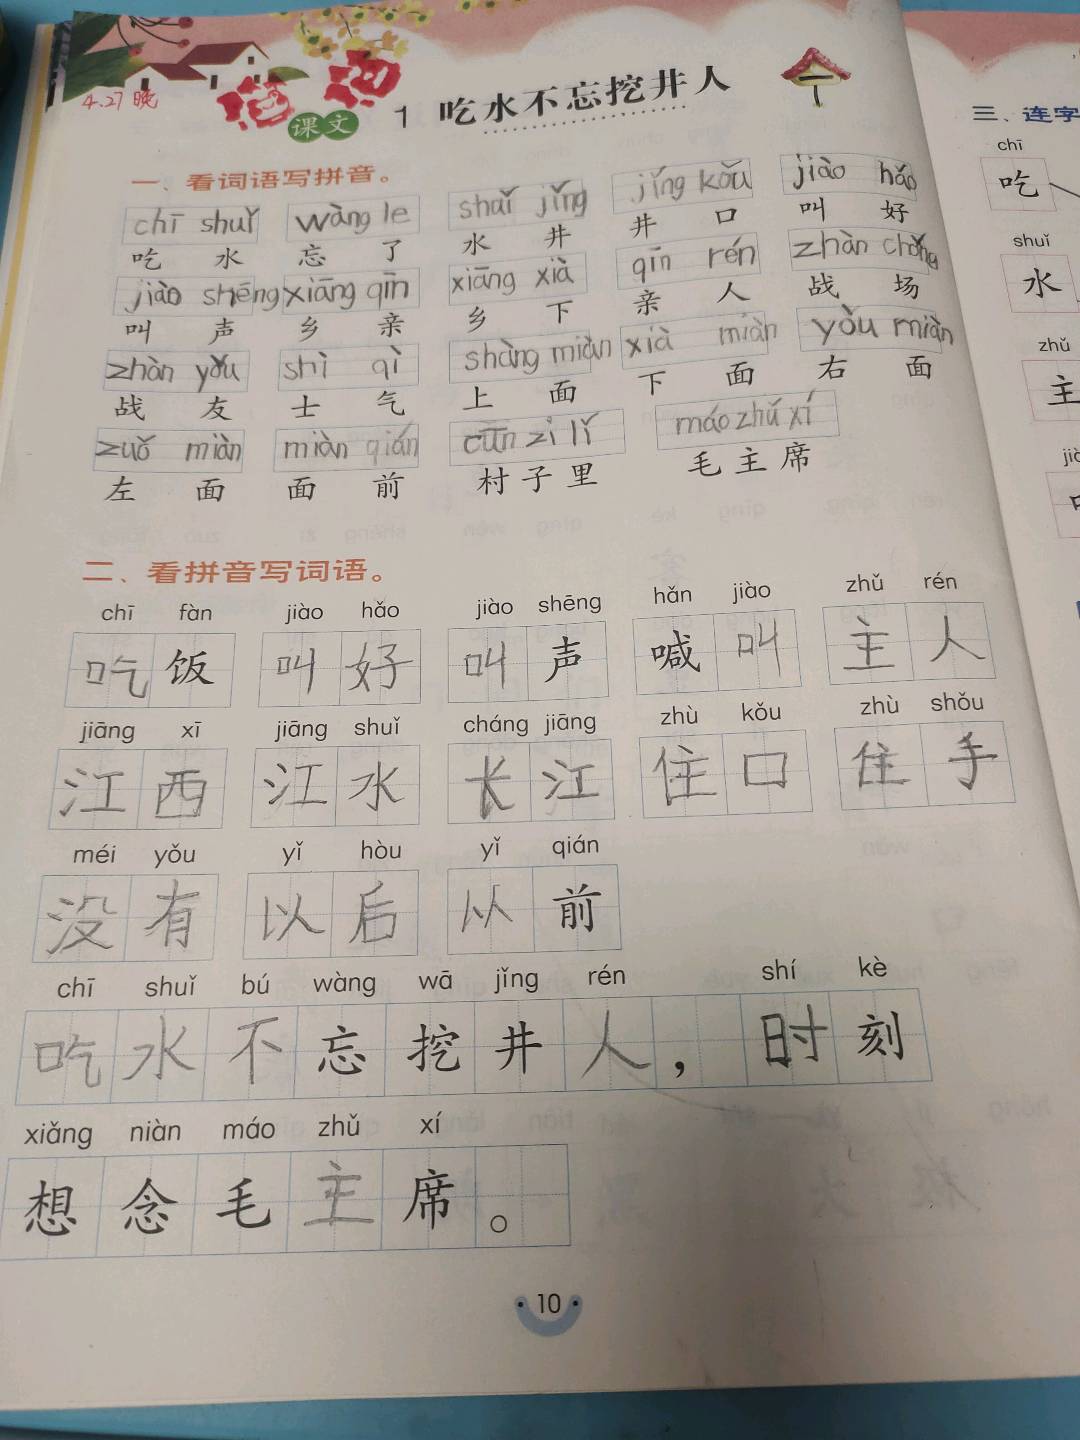 4.27晚
课文 1 吃水不忘挖井人
一、看词语写拼音。
chī shuǐ wàng le shuǐ jǐng jǐng kǒu jiào hǎo
吃 水 忘 了 水 井 井 口 叫 好
jiào shēng xiāng qīn xiāng xià qīn rén zhàn chǎng
叫 声 乡 亲 乡 下 亲 人 战 场
zhàn yǒu shì qì shàng miàn xià miàn yòu miàn
战 友 士 气 上 面 下 面 右 面
zuǒ miàn miàn qián cūn zi lǐ máo zhǔ xí
左 面 面 前 村 子 里 毛 主 席
二、看拼音写词语。
chī fàn jiào hǎo jiào shēng hǎn jiào zhǔ rén
吃 饭 叫 好 叫 声 喊 叫 主 人
jiāng xī jiāng shuǐ cháng jiāng zhù kǒu zhù shǒu
江 西 江 水 长 江 住 口 住 手
méi yǒu yǐ hòu yǐ qián
没 有 以 后 以 前
chī shuǐ bú wàng wā jǐng rén shí kè
吃 水 不 忘 挖 井 人 ， 时 刻
xiǎng niàn máo zhǔ xí
想 念 毛 主 席 。
10
三、连字
chī
吃
shuǐ
水
zhǔ
主